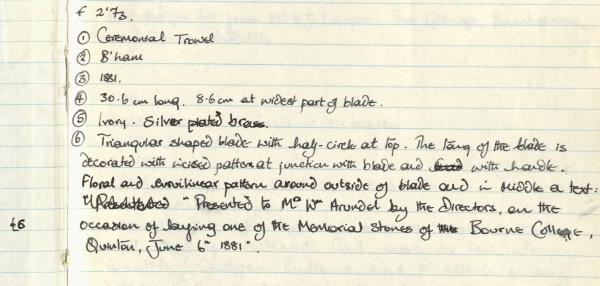 F 2'73.
① Ceremonial Trowel
② B'ham
③ 1881.
④ 30.6 cm long. 8.6 cm at widest part of blade.
⑤ Ivory. Silver plated brass.
⑥ Triangular shaped blade with half-circle at top. The tang of the blade is
decorated with incised pattern at junction with blade and with handle.
Floral and curvilinear pattern around outside of blade and in middle a text:
"Presented to Mr Wm Arundel by the Directors, on the
£6 occasion of laying one of the Memorial Stones of Bourne College,
Quinton, June 6th 1881".